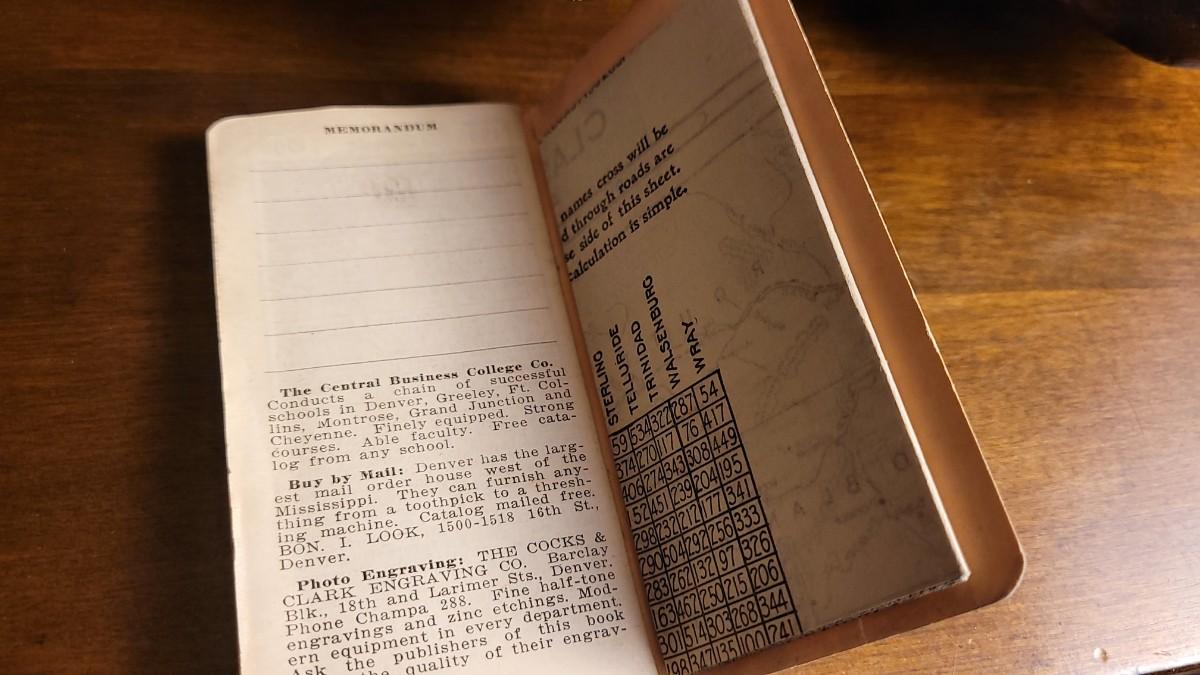 MEMORANDUM
The Central Business College Co.
Conducts a chain of successful
schools in Denver, Greeley, Ft. Col-
lins, Montrose, Grand Junction and
Cheyenne. Finely equipped. Strong
courses. Able faculty. Free cata-
log from any school.
Buy by Mail: Denver has the larg-
est mail order house west of the
Mississippi. They can furnish any-
thing from a toothpick to a thresh-
ing machine. Catalog mailed free.
BON. I. LOOK, 1500-1518 16th St.,
Denver.
Photo Engraving: THE COCKS &
CLARK ENGRAVING CO. Barclay
Blk., 18th and Larimer Sts., Denver.
Phone Champa 288. Fine half-tone
engravings and zinc etchings. Mod-
ern equipment in every department.
Ask the publishers of this book
the quality of their engrav-
names cross will be
d through roads are
se side of this sheet.
calculation is simple.
STERLING
TELLURIDE
TRINIDAD
WALSENBURG
WRAY
59 534 322 287 54
374 270 117 76 417
406 274 343 308 449
52 451 239 204 195
298 232 212 177 341
290 504 292 256 333
283 262 132 97 326
163 462 250 215 206
301 514 303 268 344
198 347 135 100 241